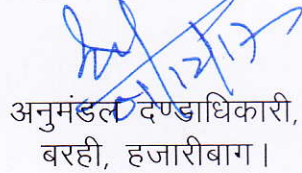 01/12/17
अनुमंडल दण्डाधिकारी,
बरही, हजारीबाग।